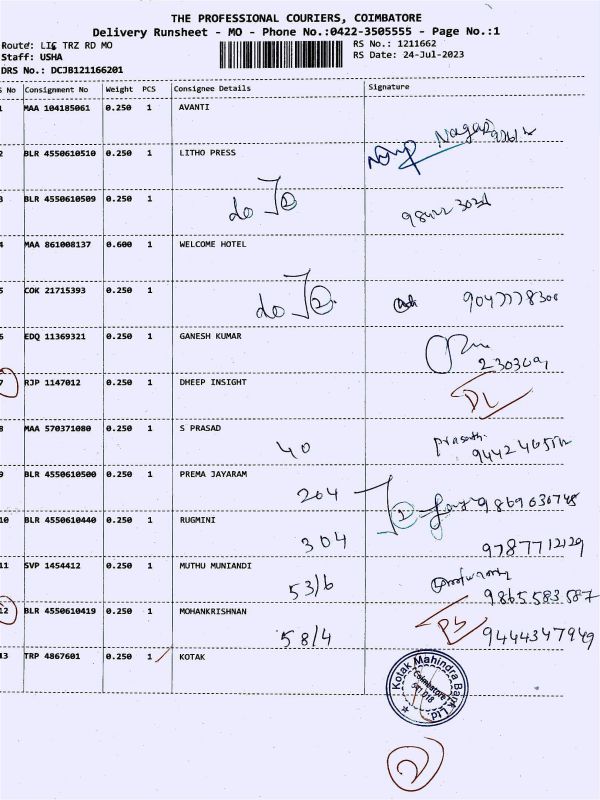 THE PROFESSIONAL COURIERS, COIMBATORE
Delivery Runsheet - MO - Phone No.:0422-3505555 - Page No.:1
Route: LIC TRZ RD MO
RS No.: 1211662
Staff: USHA
RS Date: 24-Jul-2023
DRS No.: DCJB121166201
S No Consignment No Weight PCS Consignee Details Signature
1 MAA 104185061 0.250 1 AVANTI
2 BLR 4550610510 0.250 1 LITHO PRESS
3 BLR 4550610509 0.250 1
do
4 MAA 861008137 0.600 1 WELCOME HOTEL
5 COK 21715393 0.250 1
do
6 EDQ 11369321 0.250 1 GANESH KUMAR
7 RJP 1147012 0.250 1 DHEEP INSIGHT
DL
8 MAA 570371080 0.250 1 S PRASAD
40
9 BLR 4550610500 0.250 1 PREMA JAYARAM
204
10 BLR 4550610440 0.250 1 RUGMINI
304 9787712129
11 SVP 1454412 0.250 1 MUTHU MUNIANDI
53/6 9865583587
12 BLR 4550610419 0.250 1 MOHANKRISHNAN
58/4 9444347949
13 TRP 4867601 0.250 1 KOTAK
Kotak Mahindra Bank Ltd
Coimbatore
641 018
2